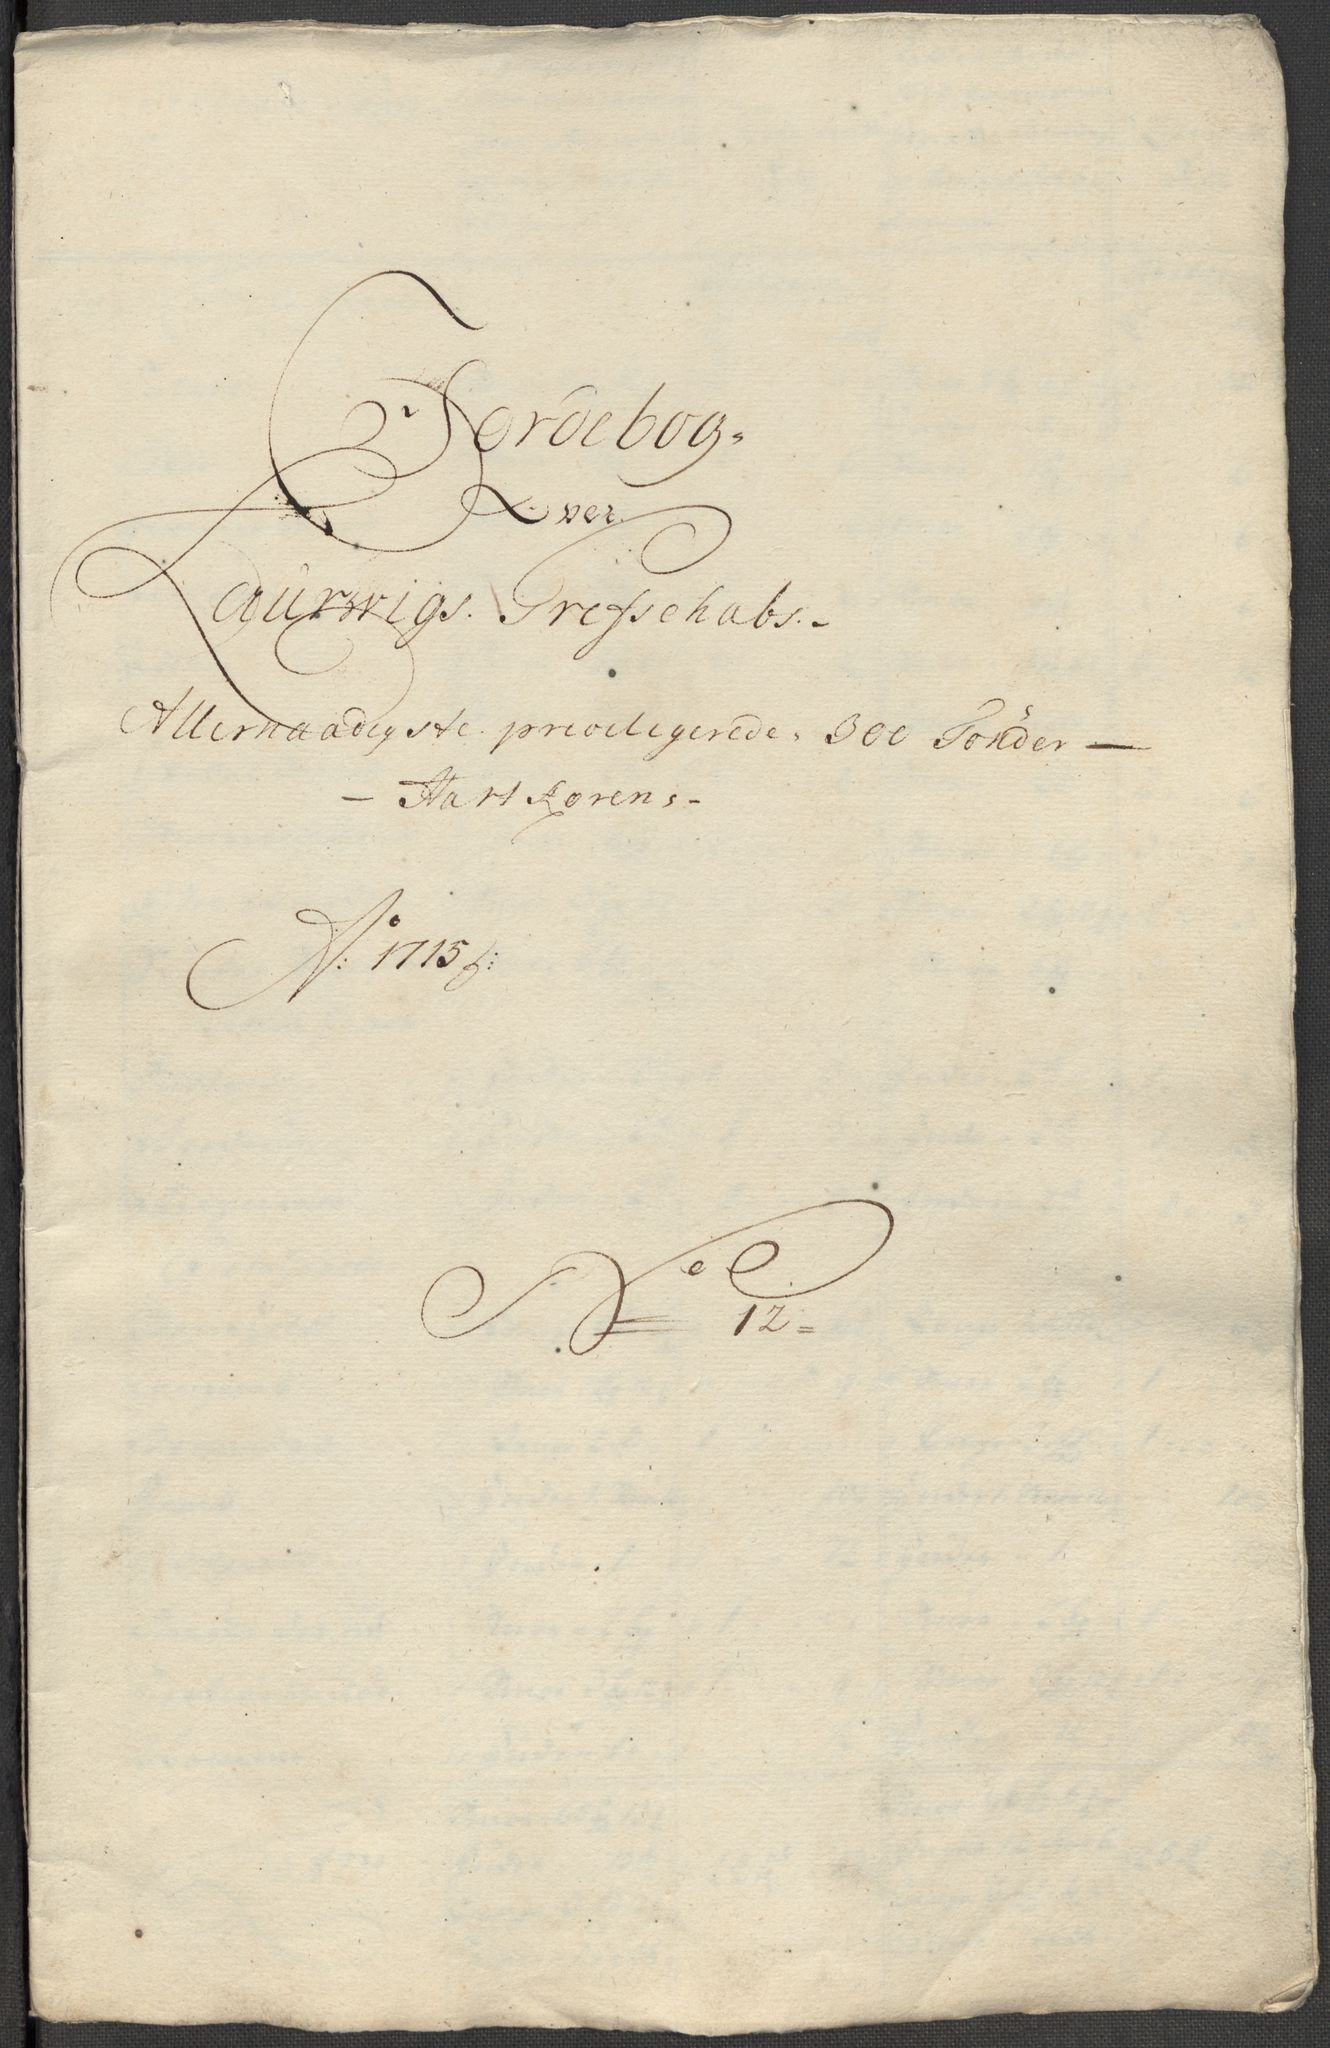 Jordebog
Over
Laurwigs Grefschabs
Allernaadigste privilegerede 300 Tønder
Hart Korens
No: 1715
No 12